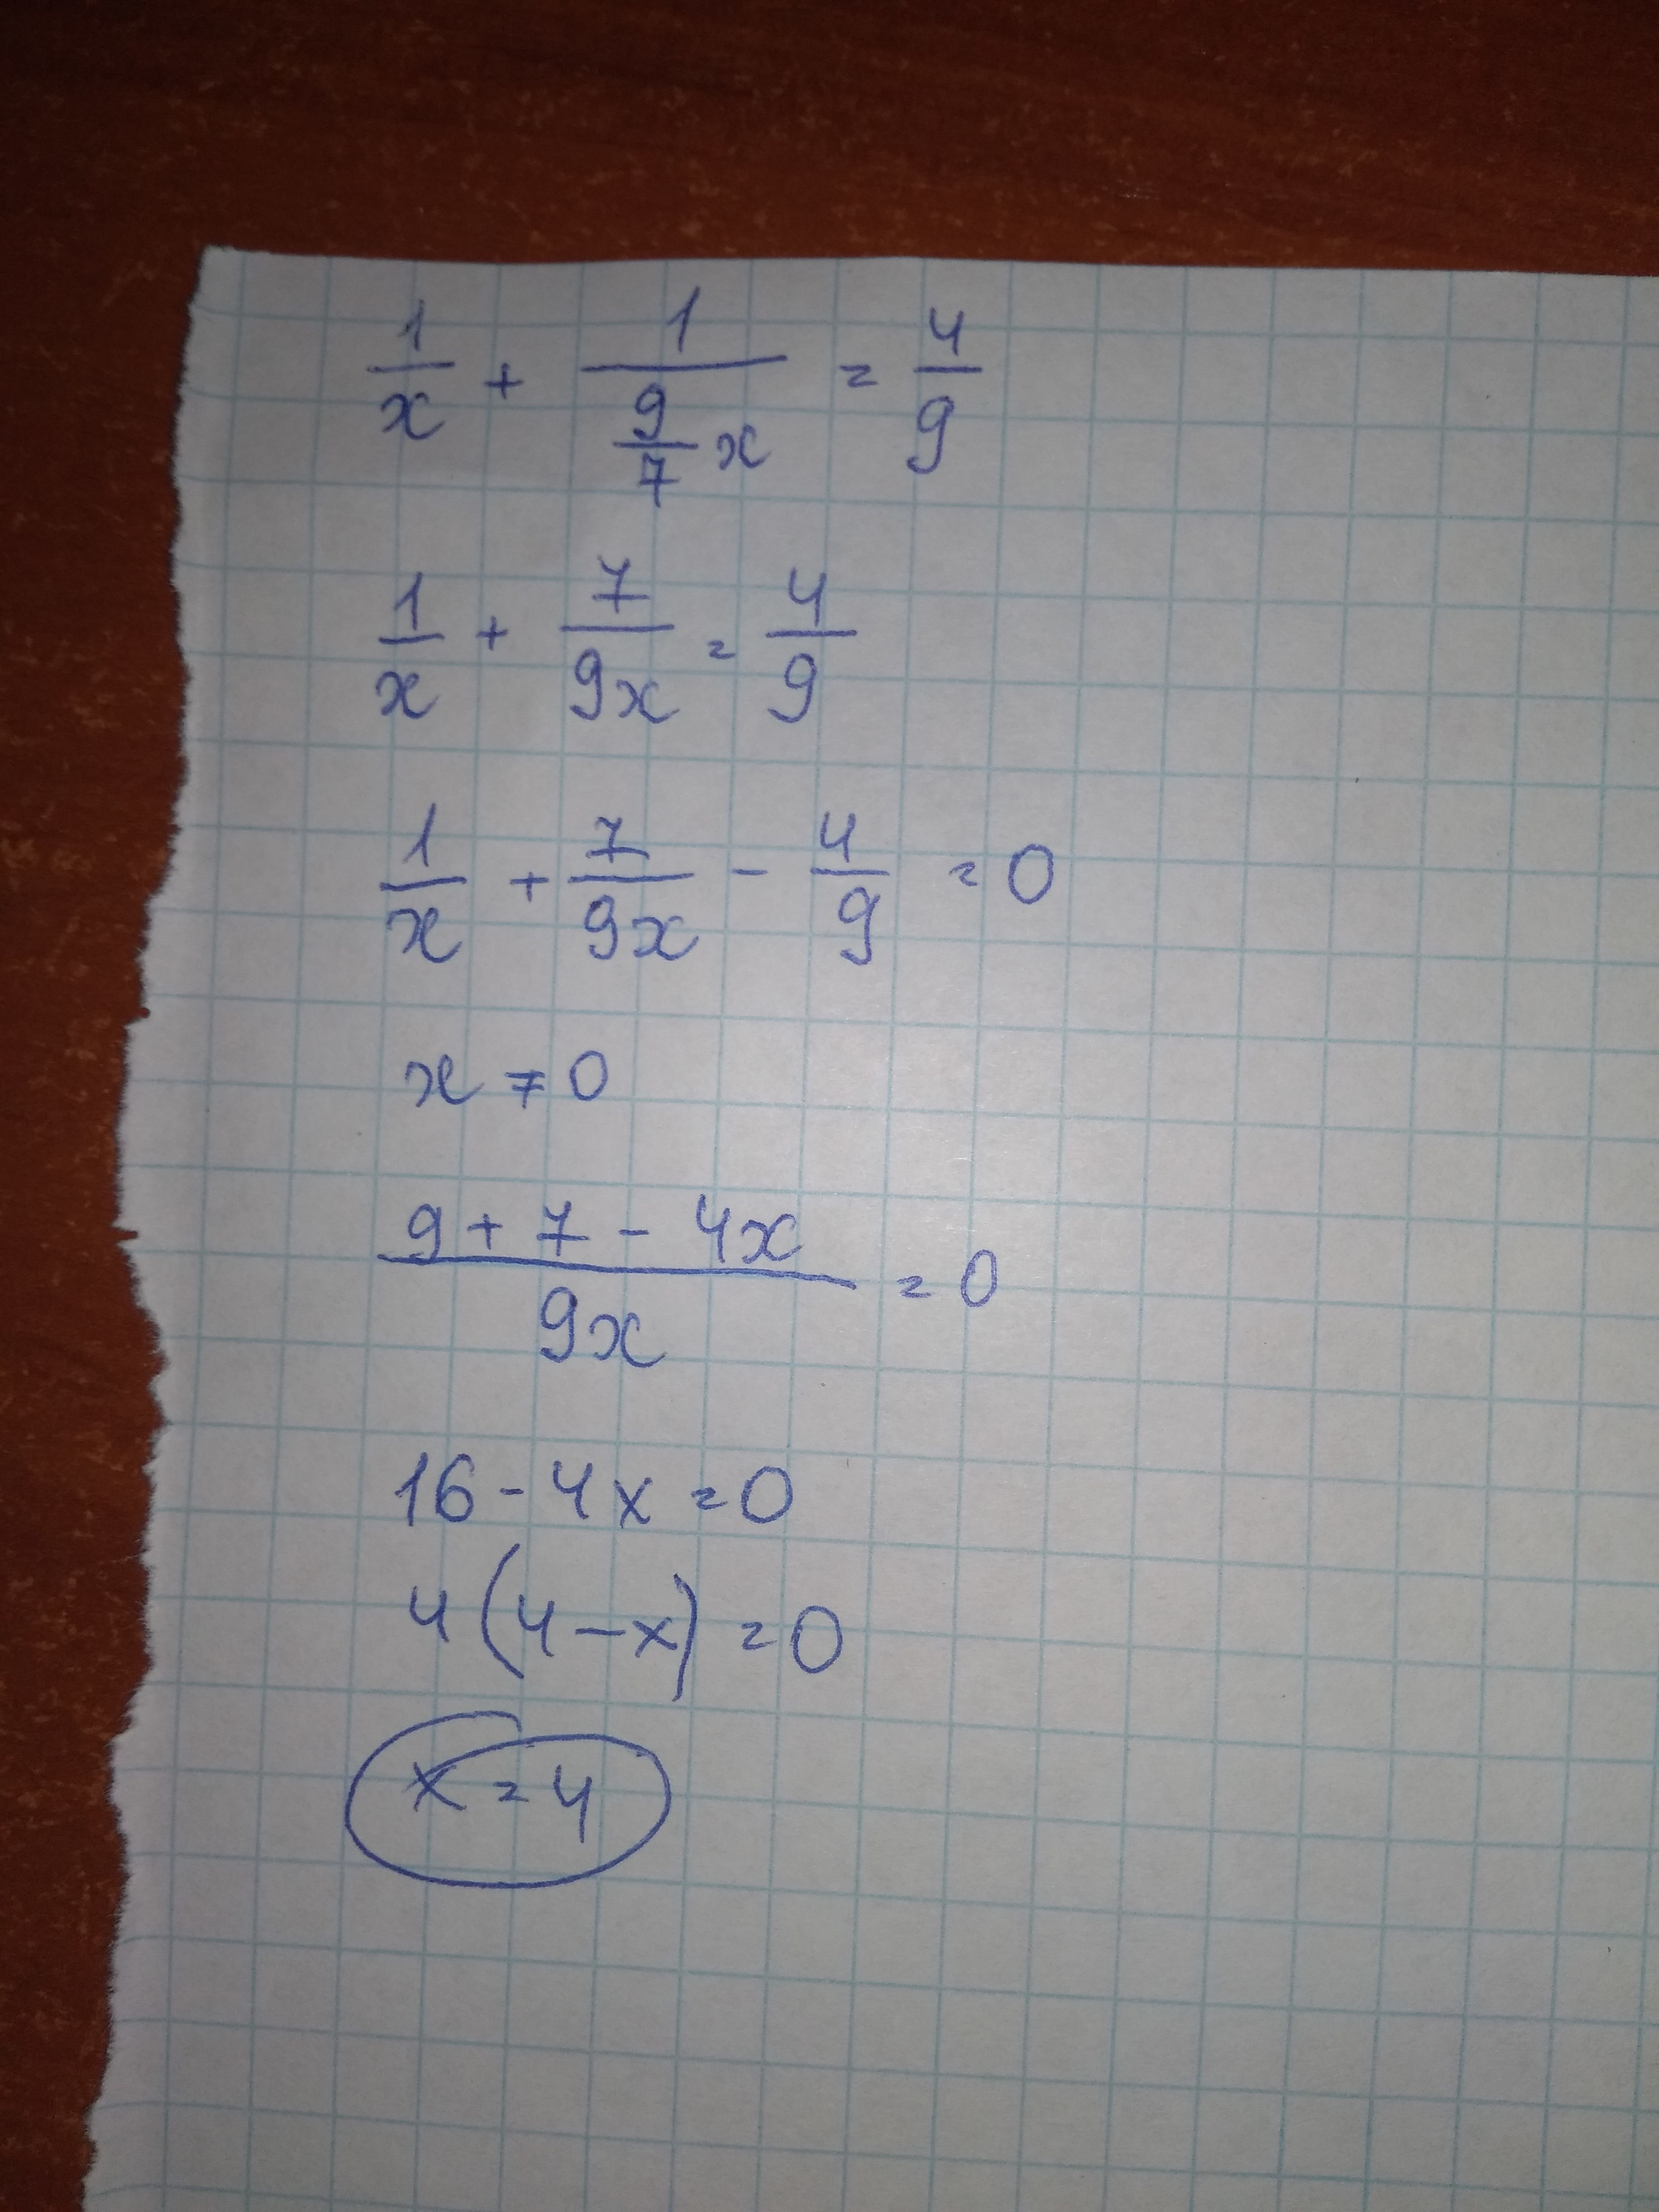 1/x + 1/(9/7 x) = 4/9
1/x + 7/9x = 4/9
1/x + 7/9x - 4/9 = 0
x ≠ 0
(9 + 7 - 4x)/9x = 0
16 - 4x = 0
4(4 - x) = 0
x = 4